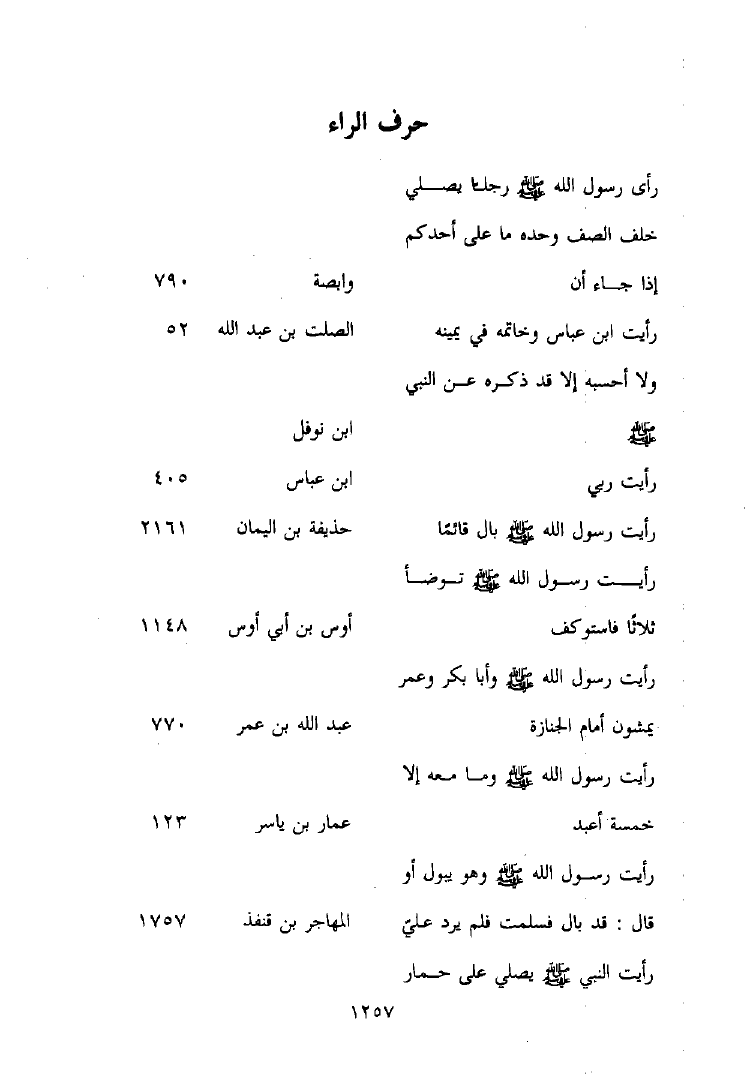 حرف الراء
رأى رسول الله ﷺ رجلا يصلي
خلف الصف وحده ما على أحدكم
إذا جاء أن وابصة ٧٩٠
رأيت ابن عباس وخاتمه في يمينه الصلت بن عبد الله ٥٢
ولا أحسبه إلا قد ذكره عن النبي
ﷺ ابن نوفل
رأيت ربي ابن عباس ٤٠٥
رأيت رسول الله ﷺ بال قائمًا حذيفة بن اليمان ٢١٦١
رأيت رسول الله ﷺ توضأ
ثلاثًا فاستوكف أوس بن أبي أوس ١١٤٨
رأيت رسول الله ﷺ وأبا بكر وعمر
يمشون أمام الجنازة عبد الله بن عمر ٧٧٠
رأيت رسول الله ﷺ وما معه إلا
خمسة أعبد عمار بن ياسر ١٢٣
رأيت رسول الله ﷺ وهو يبول أو
قال : قد بال فسلمت فلم يرد عليّ المهاجر بن قنفذ ١٧٥٧
رأيت النبي ﷺ يصلي على حمار
١٢٥٧